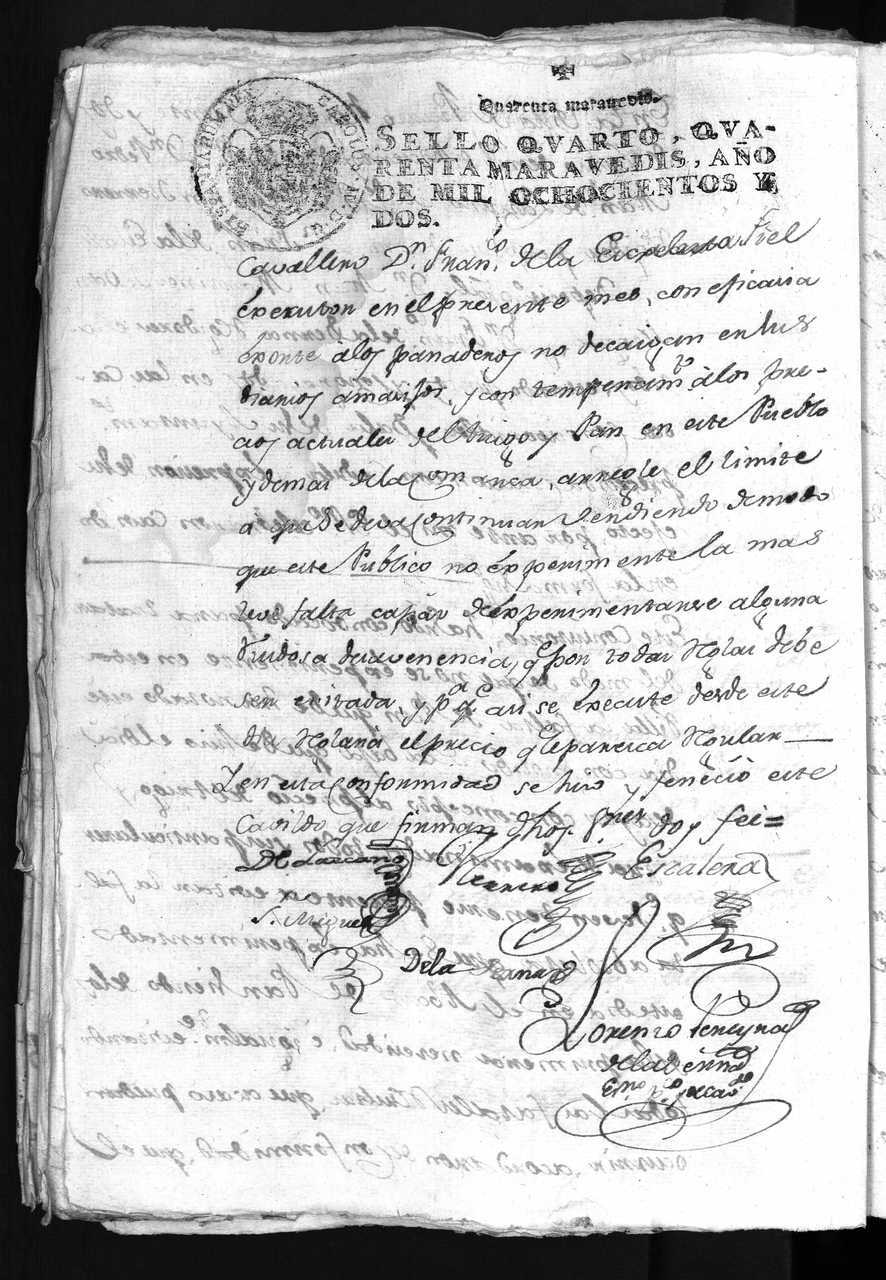 Quarenta maravedis.
SELLO QVARTO, QVA-
RENTA MARAVEDIS, AÑO
DE MIL OCHOCIENTOS Y
DOS.
CAROLUS IV D G
HISPANIAR REX
Cavallero Dn. Franco. de la Fiel
executor en el presente mes, con eficacia
exorte a los panaderos no decaigan en sus
diarios amasijos, y con temperamto. a los pre-
cios actuales del trigo y Pan en este Pueblo
y demas de la Comarca, arregle el limite
a que se deva continuar vendiendo de modo
que este Publico no experimente la mas
leve falta capaz de experimentarse alguna
ruidosa desavenencia, qe. por todas debe
ser evitada, y pa. qe. asi se execute desde este
el precio qe. le paresca
Y en esta conformidad se hizo y feneció este
Cavildo que firman doy fee=
Lazcano Herrero Escalera
S. Miguel
De la
Lorenzo
de la
Esno.